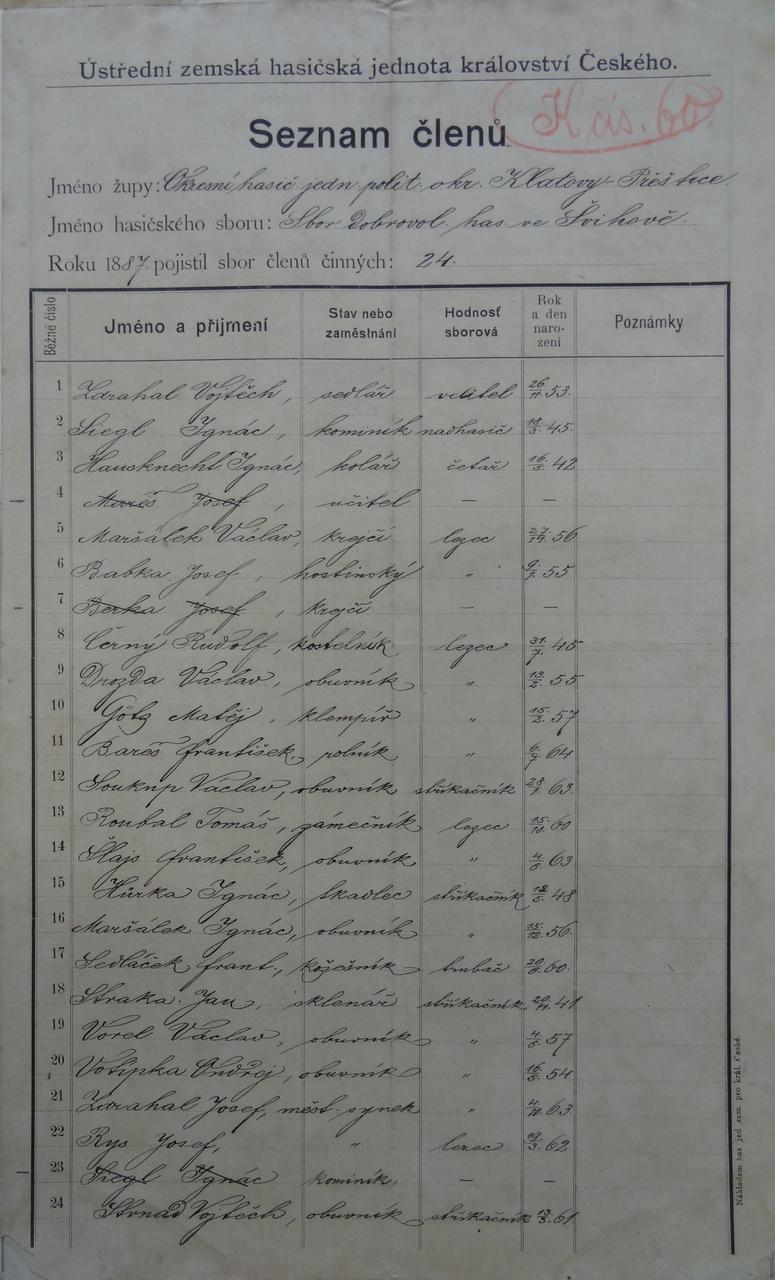 Ústřední zemská hasičská jednota království Českého.
K čís. 60.
Seznam členů
Jméno župy: Okresní hasič. jedn. polit. okr. Klatovy-Přeštice
Jméno hasičského sboru: Sbor dobrovol. has. ve Švihově.
Roku 1887 pojistil sbor členů činných: 24.
Běžné číslo Jméno a příjmení Stav nebo zaměstnání Hodnost sborová Rok a den narození Poznámky
1 Zdrahal Vojtěch, sedlář velitel 26/11. 53.
2 Siegl Ignác, kominík nadhasič 45.
3 Hausknecht Ignác, kolář četař 42
4 Mareš Josef, učitel — —
5 Maršálek Václav, krejčí lezec 56
6 Babka Josef, hostinský „ 55
7 Berka Josef, krejčí — —
8 Černý Rudolf, kostelník lezec 31/7. 45
9 Drozda Václav, obuvník „ 55
10 Götz Matěj, klempíř „ 15/2. 57
11 Bareš František, rolník „ 64
12 Soukup Václav, obuvník stříkačník 63.
13 Roubal Tomáš, zámečník lezec 15/10. 60
14 Šlajs František, obuvník „ 63
15 Hůrka Ignác, tkadlec stříkačník 48
16 Maršálek Ignác, obuvník „ 15/12. 56.
17 Sedláček Frant., kožešník trubač 60.
18 Straka Jan, sklenář stříkačník 41
19 Vorel Václav, obuvník „ 57
20 Votípka Ondřej, obuvník „ 54
21 Zdrahal Josef, měšť. synek „ 4/10. 63
22 Rys Josef, „ lezec 62
23 Siegl Ignác kominík, — —
24 Strnad Vojtěch, obuvník stříkačník 61
Nákladem has. jed. zem. pro král. České.